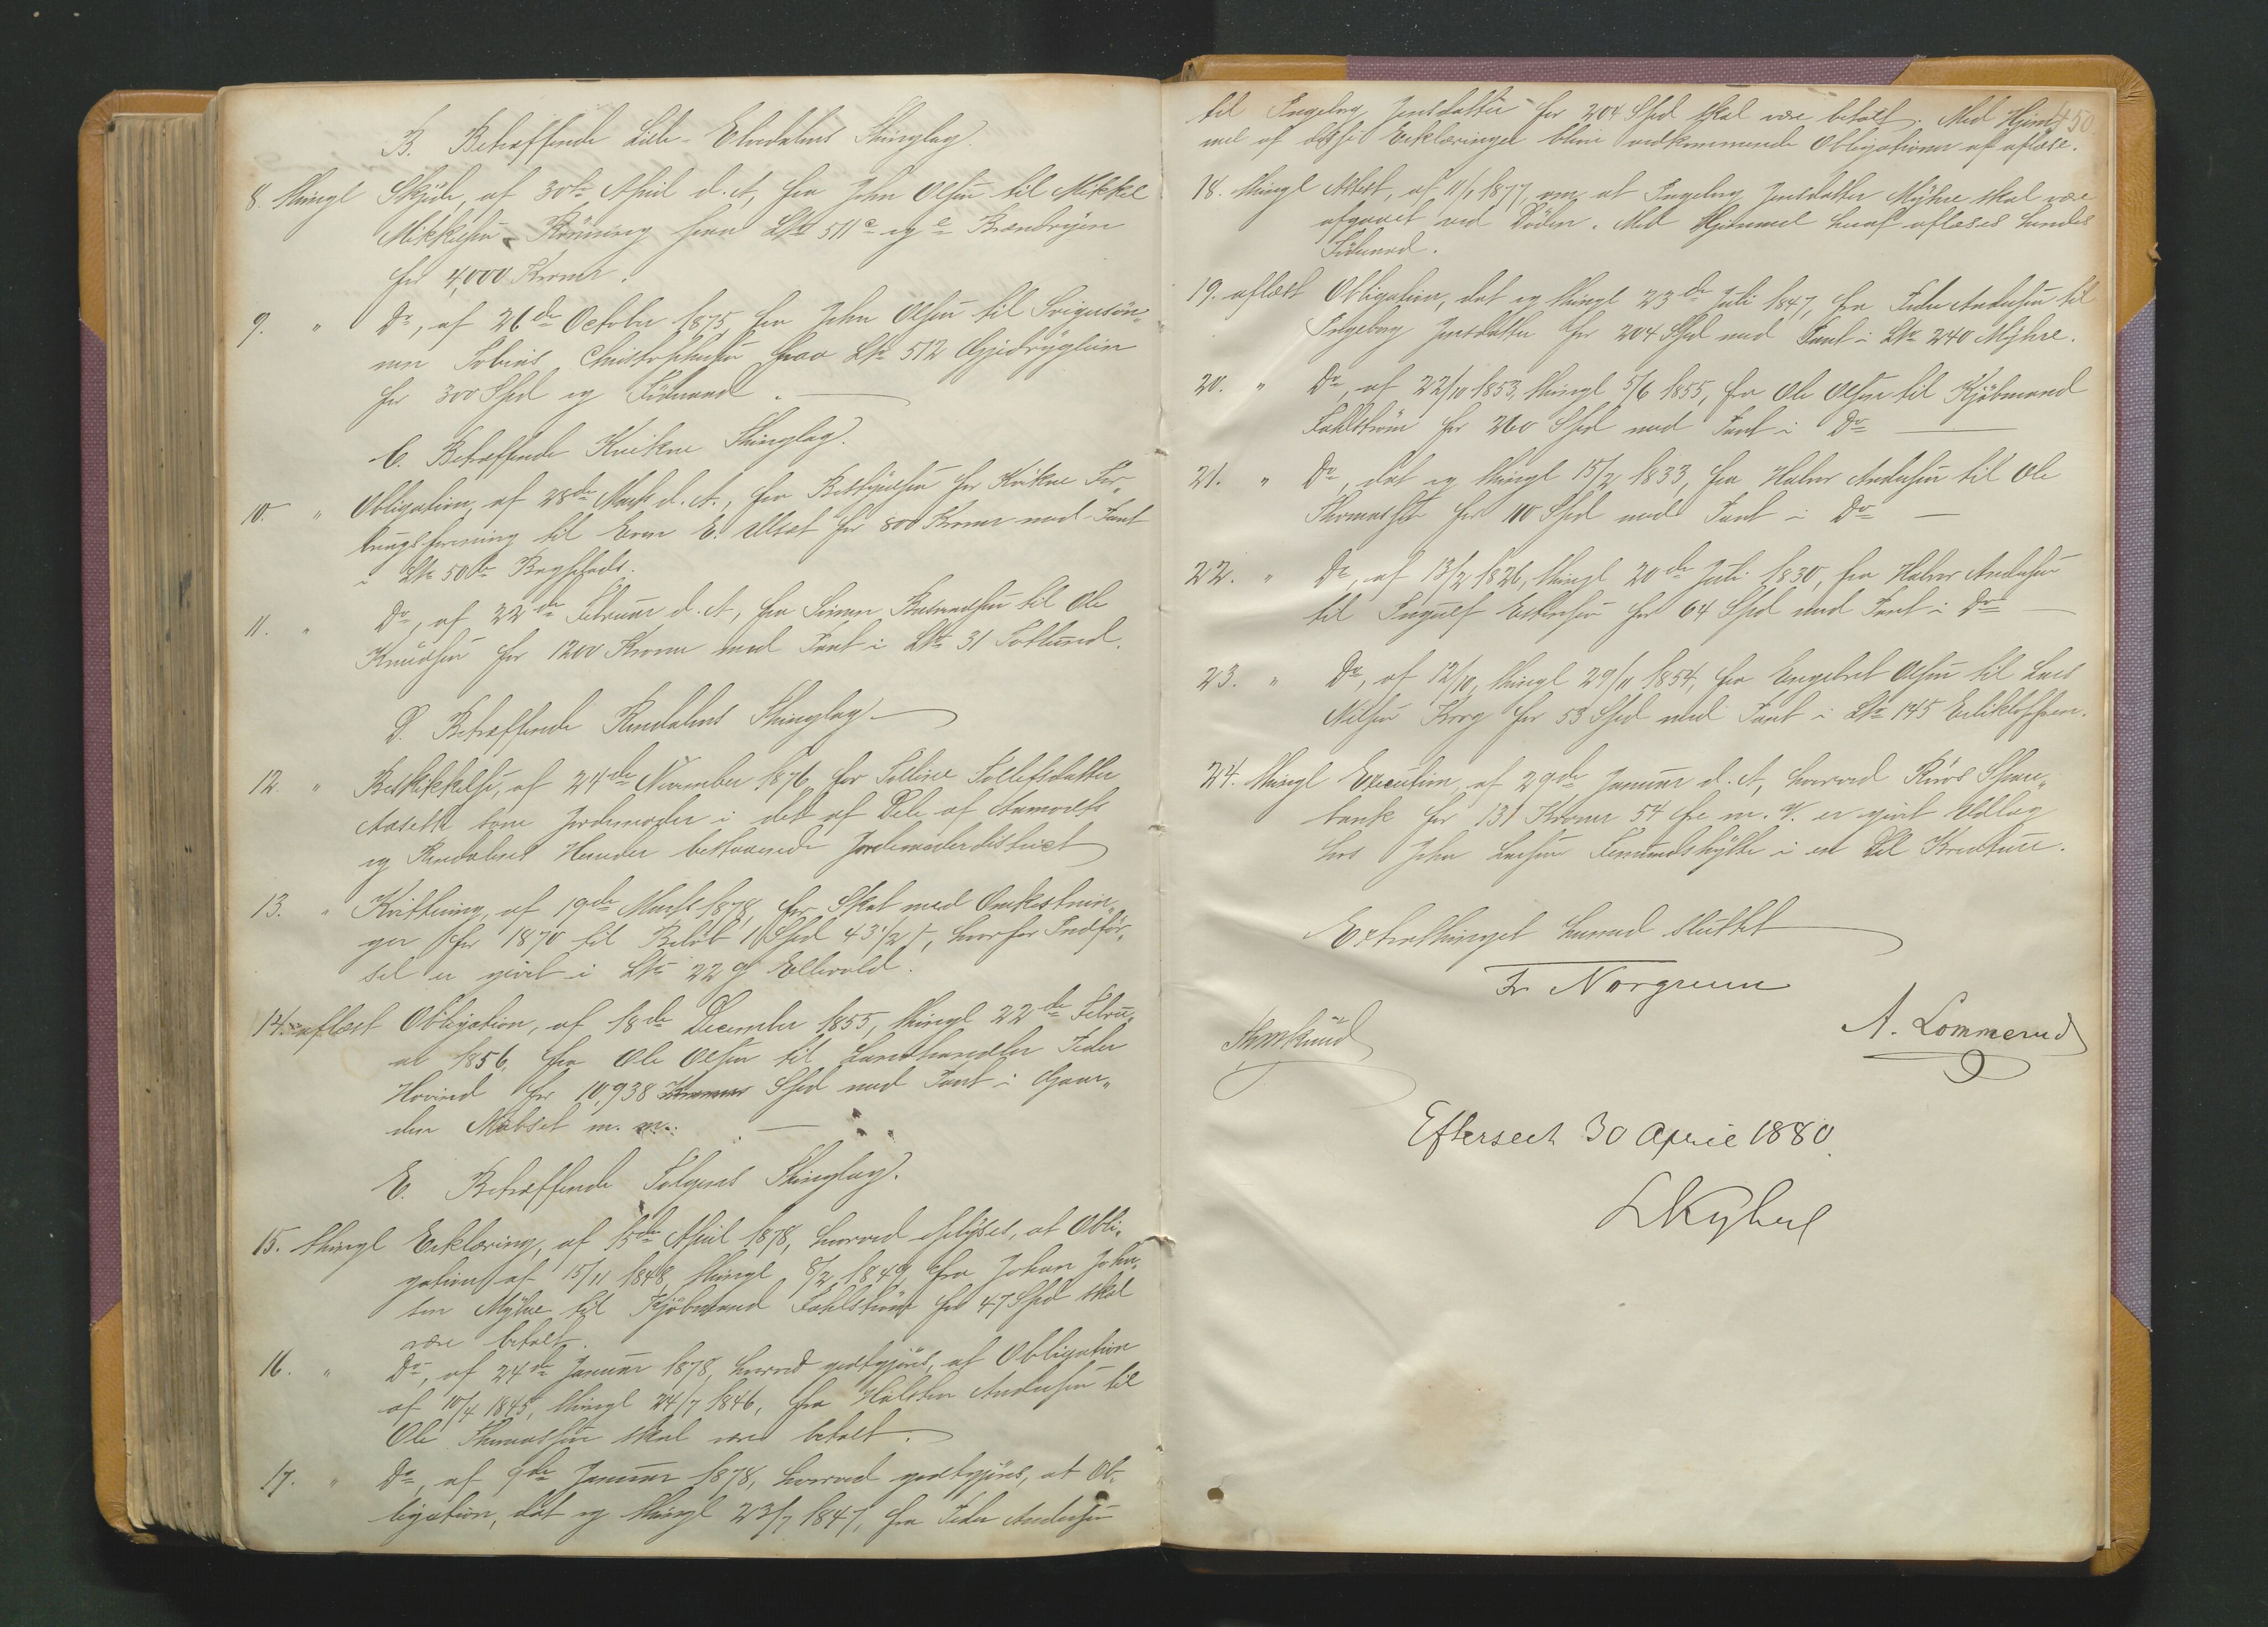 B. Betræffende Lille-Elvedalens Thinglag.
8. Thingl Skjøde, af 30te April d. A, fra John Olsen til Mikkel
Mikkelsen Rønning paa LNo 511 c og e Brændryen
for 4,000 Kroner.
9. " Do, af 26de October 1875, fra John Olsen til Svigersøn-
nen Tobias Christophersen paa LNo 512
for 300 Spd og Føderaad.
C. Betræffende Kvikne Thinglag.
10. " Obligation, af 28de Marts d. A., fra Bestyrelsen for Kvikne For-
brugsforening til Even E. for 800 Kroner med Pant
i LNo 50
11. " Do, af 22de Februar d. A, fra Simen til Ole
Knudsen for 1200 Kroner med Pant i LNo 31
D. Betræffende Rendalens Thinglag
12. " Beskikkelse, af 24de November 1876 for Tollefsdatter
Aaseth som Jordemoder i det af Dele af Aamodts
og Rendalens Herreder bestaaende Jordemoderdistrict
13. " Kvittering, af 19de Marts 1878, for Skat med Omkostnin-
ger for 1870 til Beløb 1 Spd 43 1/2 ß, hvorfor Indfør-
sel er givet i LNo 22 g Ellevold.
14. aflæst Obligation, af 18de December 1855, thingl 22de Febru-
ar 1856, fra Ole Olsen til Landhandler Peder
Hovind for 10,938 Kroner Spd med Pant i Gaar-
den m. m.
E. Betræffende Tolgens Thinglag.
15. Thingl Erklæring, af 15de April 1878, hvorved oplyses, at Obli-
gation af 15/11 1848, thingl 8/2 1849, fra Johan John-
sen Myhre til Kjøbmand Fahlstrøm for 47 Spd skal
være betalt.
16. " Do, af 24de Januar 1878, hvorved godtgjøres, at Obligation
af 10/4 1845, thingl 24/7 1846, fra Halsten Andersen til
Ole Thomassen skal være betalt.
17. " Do, af 9de Januar 1878, hvorved godtgjøres, at Ob-
ligation, dat og thingl 23/7 1847, fra Peder Andersen
450
til Ingeborg Jensdatter for 204 Spd skal være betalt. Med Hjem-
mel af disse Erklæringer blive vedkommende Obligationer at aflæse.
18. Thingl Attest, af 11/1 1877, om, at Ingeborg Jensdatter Myhre skal være
afgaaet ved Døden. Med Hjemmel heraf aflæses hendes
Føderaad.
19. aflæst Obligation, dat og thingl 23de Juli 1847, fra Peder Andersen til
Ingeborg Jensdatter for 204 Spd med Pant i LNo 240 Myhre.
20. " Do, af 22/10 1853, thingl 5/6 1855, fra Ole Olsen til Kjøbmand
Fahlstrøm for 260 Spd med Pant i Do
21. " Do, dat og thingl 15/2 1833, fra Halvor Andersen til Ole
Thomassen for 110 Spd med Pant i Do
22. " Do, af 13/2 1826, thingl 20de Juli 1830, fra Halvor Andersen
til Ingulf Estensen for 64 Spd med Pant i Do
23. " Do, af 12/10, thingl 29/11 1854, fra Engebret Olsen til Lars
Nilsen Krog for 53 Spd med Pant i LNo 145
24. Thingl Execution, af 29de Januar d. A, hvorved Røros Spare-
bank for 131 Kroner 54 Øre m. V. er givet Udlæg
hos John Larsen Femundshytte i en Del Kreaturer.
Extrathinget hermed sluttet
Fr Norgrenn
A. Lommerud
Efterseet 30 April 1880.